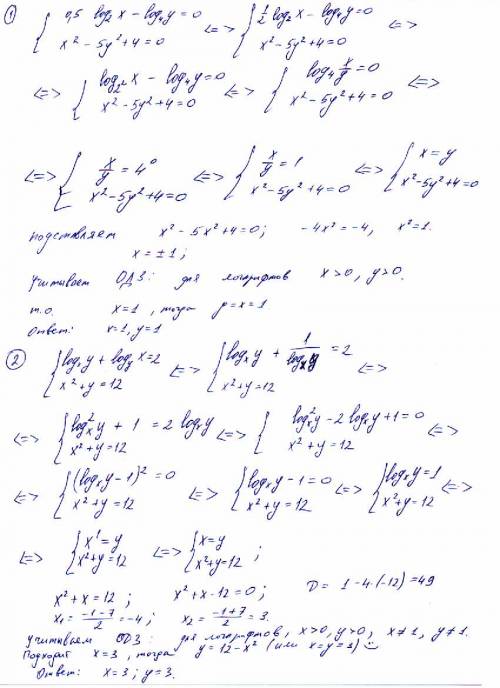 ① { 0,5 log₂x − log₄y = 0 ; x² − 5y² + 4 = 0 <=> { 1/2 log₂x − log₄y = 0 ; x² − 5y² + 4 = 0 <=>
<=> { log₂²x − log₄y = 0 ; x² − 5y² + 4 = 0 <=> { log₄ x/y = 0 ; x² − 5y² + 4 = 0 <=>
<=> { x/y = 4⁰ ; x² − 5y² + 4 = 0 <=> { x/y = 1 ; x² − 5y² + 4 = 0 <=> { x = y ; x² − 5y² + 4 = 0
подставляем x² − 5x² + 4 = 0; −4x² = −4, x² = 1.
x = ±1;
Учитываем ОДЗ: для логарифмов x>0, y>0.
т.о. x = 1, тогда y = x = 1
Ответ: x=1, y=1
② { logₓy + log_y x = 2 ; x² + y = 12 <=> { logₓy + 1/logₓy = 2 ; x² + y = 12 <=>
<=> { logₓ²y + 1 = 2 logₓy ; x² + y = 12 <=> { logₓ²y − 2 logₓy + 1 = 0 ; x² + y = 12 <=>
<=> { (logₓy − 1)² = 0 ; x² + y = 12 <=> { logₓy − 1 = 0 ; x² + y = 12 <=> { logₓy = 1 ; x² + y = 12 <=>
<=> { x¹ = y ; x² + y = 12 <=> { x = y ; x² + y = 12 ;
x² + x = 12; x² + x − 12 = 0; D = 1 − 4·(−12) = 49
x₁ = (−1−7)/2 = −4; x₂ = (−1+7)/2 = 3.
Учитываем ОДЗ: для логарифмов, x>0, y>0, x≠1, y≠1.
Подходит x=3, тогда y = 12 − x² (или x=y=3) ☺
Ответ: x=3; y=3.